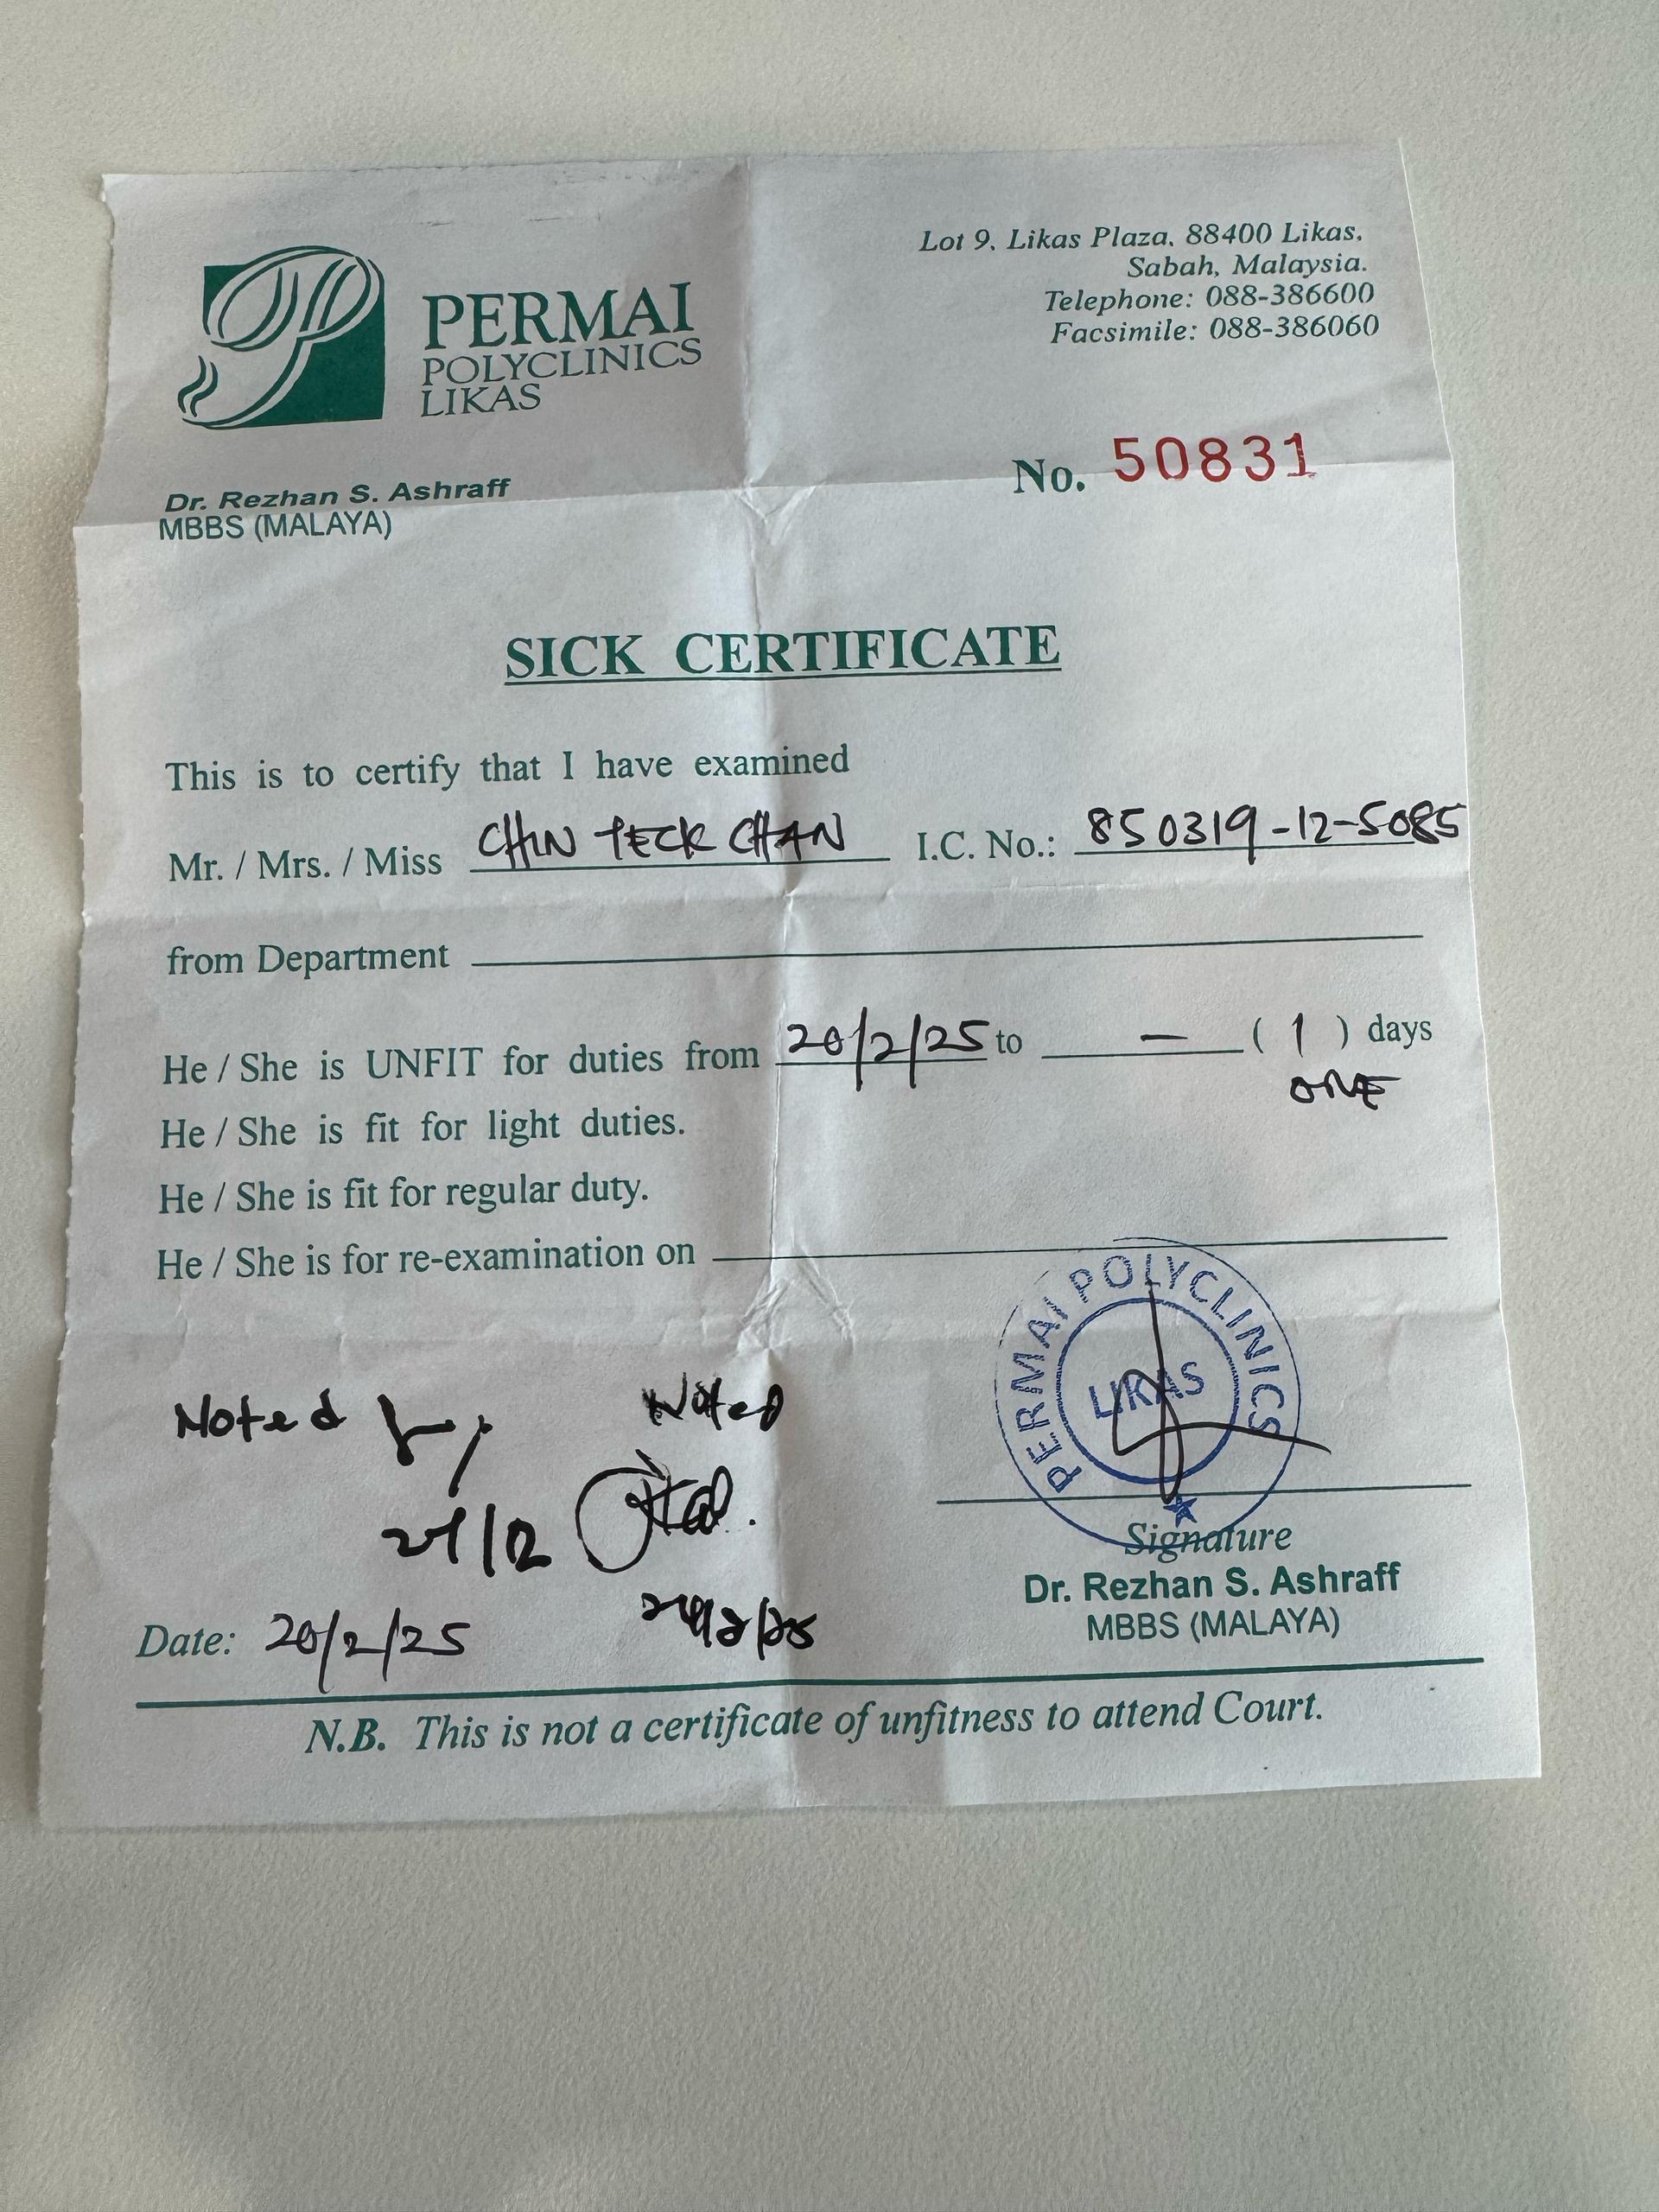 PERMAI
POLYCLINICS
LIKAS
Lot 9, Likas Plaza, 88400 Likas,
Sabah, Malaysia.
Telephone: 088-386600
Facsimile: 088-386060
No. 50831
Dr. Rezhan S. Ashraff
MBBS (MALAYA)
SICK CERTIFICATE
This is to certify that I have examined
Mr. / Mrs. / Miss CHIN TECK CHAN I.C. No.: 850319-12-5085
from Department
He / She is UNFIT for duties from 20/2/25 to — ( 1 ) days
ONE
He / She is fit for light duties.
He / She is fit for regular duty.
He / She is for re-examination on
PERMAI POLYCLINICS
LIKAS
Noted
Noted
Signature
Dr. Rezhan S. Ashraff
MBBS (MALAYA)
Date: 20/2/25
N.B. This is not a certificate of unfitness to attend Court.